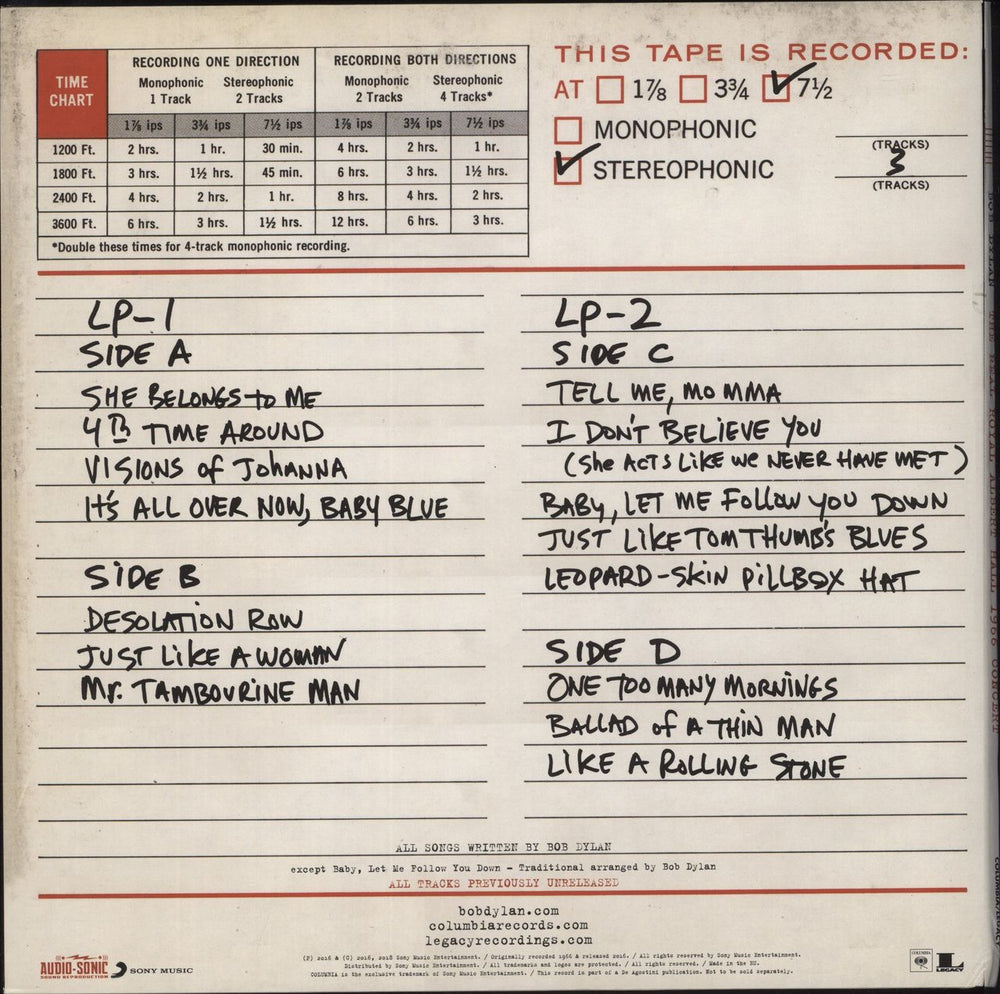 TIME CHART
RECORDING ONE DIRECTION
RECORDING BOTH DIRECTIONS
Monophonic 1 Track
Stereophonic 2 Tracks
Monophonic 2 Tracks
Stereophonic 4 Tracks*
1⅞ ips 3¾ ips 7½ ips 1⅞ ips 3¾ ips 7½ ips
1200 Ft. 2 hrs. 1 hr. 30 min. 4 hrs. 2 hrs. 1 hr.
1800 Ft. 3 hrs. 1½ hrs. 45 min. 6 hrs. 3 hrs. 1½ hrs.
2400 Ft. 4 hrs. 2 hrs. 1 hr. 8 hrs. 4 hrs. 2 hrs.
3600 Ft. 6 hrs. 3 hrs. 1½ hrs. 12 hrs. 6 hrs. 3 hrs.
*Double these times for 4-track monophonic recording.
THIS TAPE IS RECORDED:
AT 1⅞ 3¾ 7½
MONOPHONIC
(TRACKS)
STEREOPHONIC 3
(TRACKS)
LP-1
SIDE A
SHE BELONGS to ME
4th TIME AROUND
VISIONS of JOHANNA
It's ALL OVER NOW, BABY BLUE
SIDE B
DESOLATION ROW
JUST LIKE A WOMAN
Mr. TAMBOURINE MAN
LP-2
SIDE C
TELL ME, MOMMA
I DON'T BELIEVE YOU
(She ACTS LIKE WE NEVER HAVE MET)
BABY, LET ME FOLLOW YOU DOWN
JUST LIKE TOM THUMB'S BLUES
LEOPARD-SKIN PILLBOX HAT
SIDE D
ONE TOO MANY MORNINGS
BALLAD of A THIN MAN
LIKE A ROLLING STONE
ALL SONGS WRITTEN BY BOB DYLAN
except Baby, Let Me Follow You Down - Traditional arranged by Bob Dylan
ALL TRACKS PREVIOUSLY UNRELEASED
bobdylan.com
columbiarecords.com
legacyrecordings.com
(P) 2016 & (C) 2016, 2018 Sony Music Entertainment. / Originally recorded 1966 & released 2016. / All rights reserved by Sony Music Entertainment.
Distributed by Sony Music Entertainment. / All trademarks and logos are protected. / All rights reserved. / Made in the EU.
COLUMBIA is the exclusive trademark of Sony Music Entertainment. / This record is part of a De Agostini publication. Not to be sold separately.
AUDIO-SONIC
SOUND REPRODUCTION
SONY MUSIC
COLUMBIA
L
LEGACY